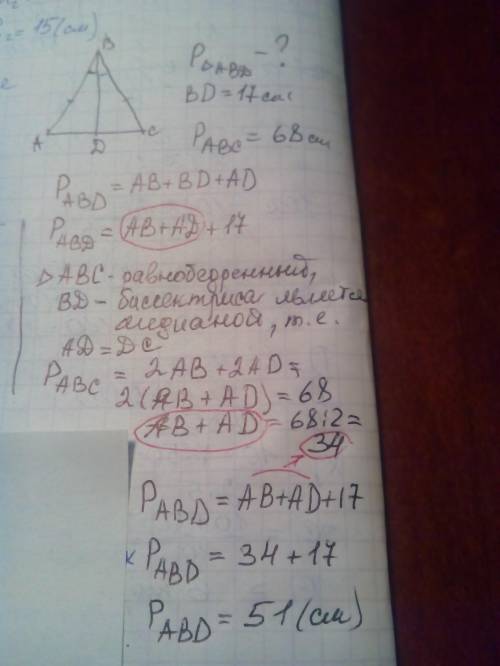 = 15 (см)
B
A
D
C
P△ABD - ?
BD = 17 см
P_ABC = 68 см
P_ABD = AB + BD + AD
P_ABD = AB + AD + 17
△ ABC - равнобедренный,
BD - биссектриса является
медианой, т.е.
AD = DC
P_ABC = 2AB + 2AD =
2(AB + AD) = 68
AB + AD = 68:2 =
34
P_ABD = AB + AD + 17
P_ABD = 34 + 17
P_ABD = 51 (см)